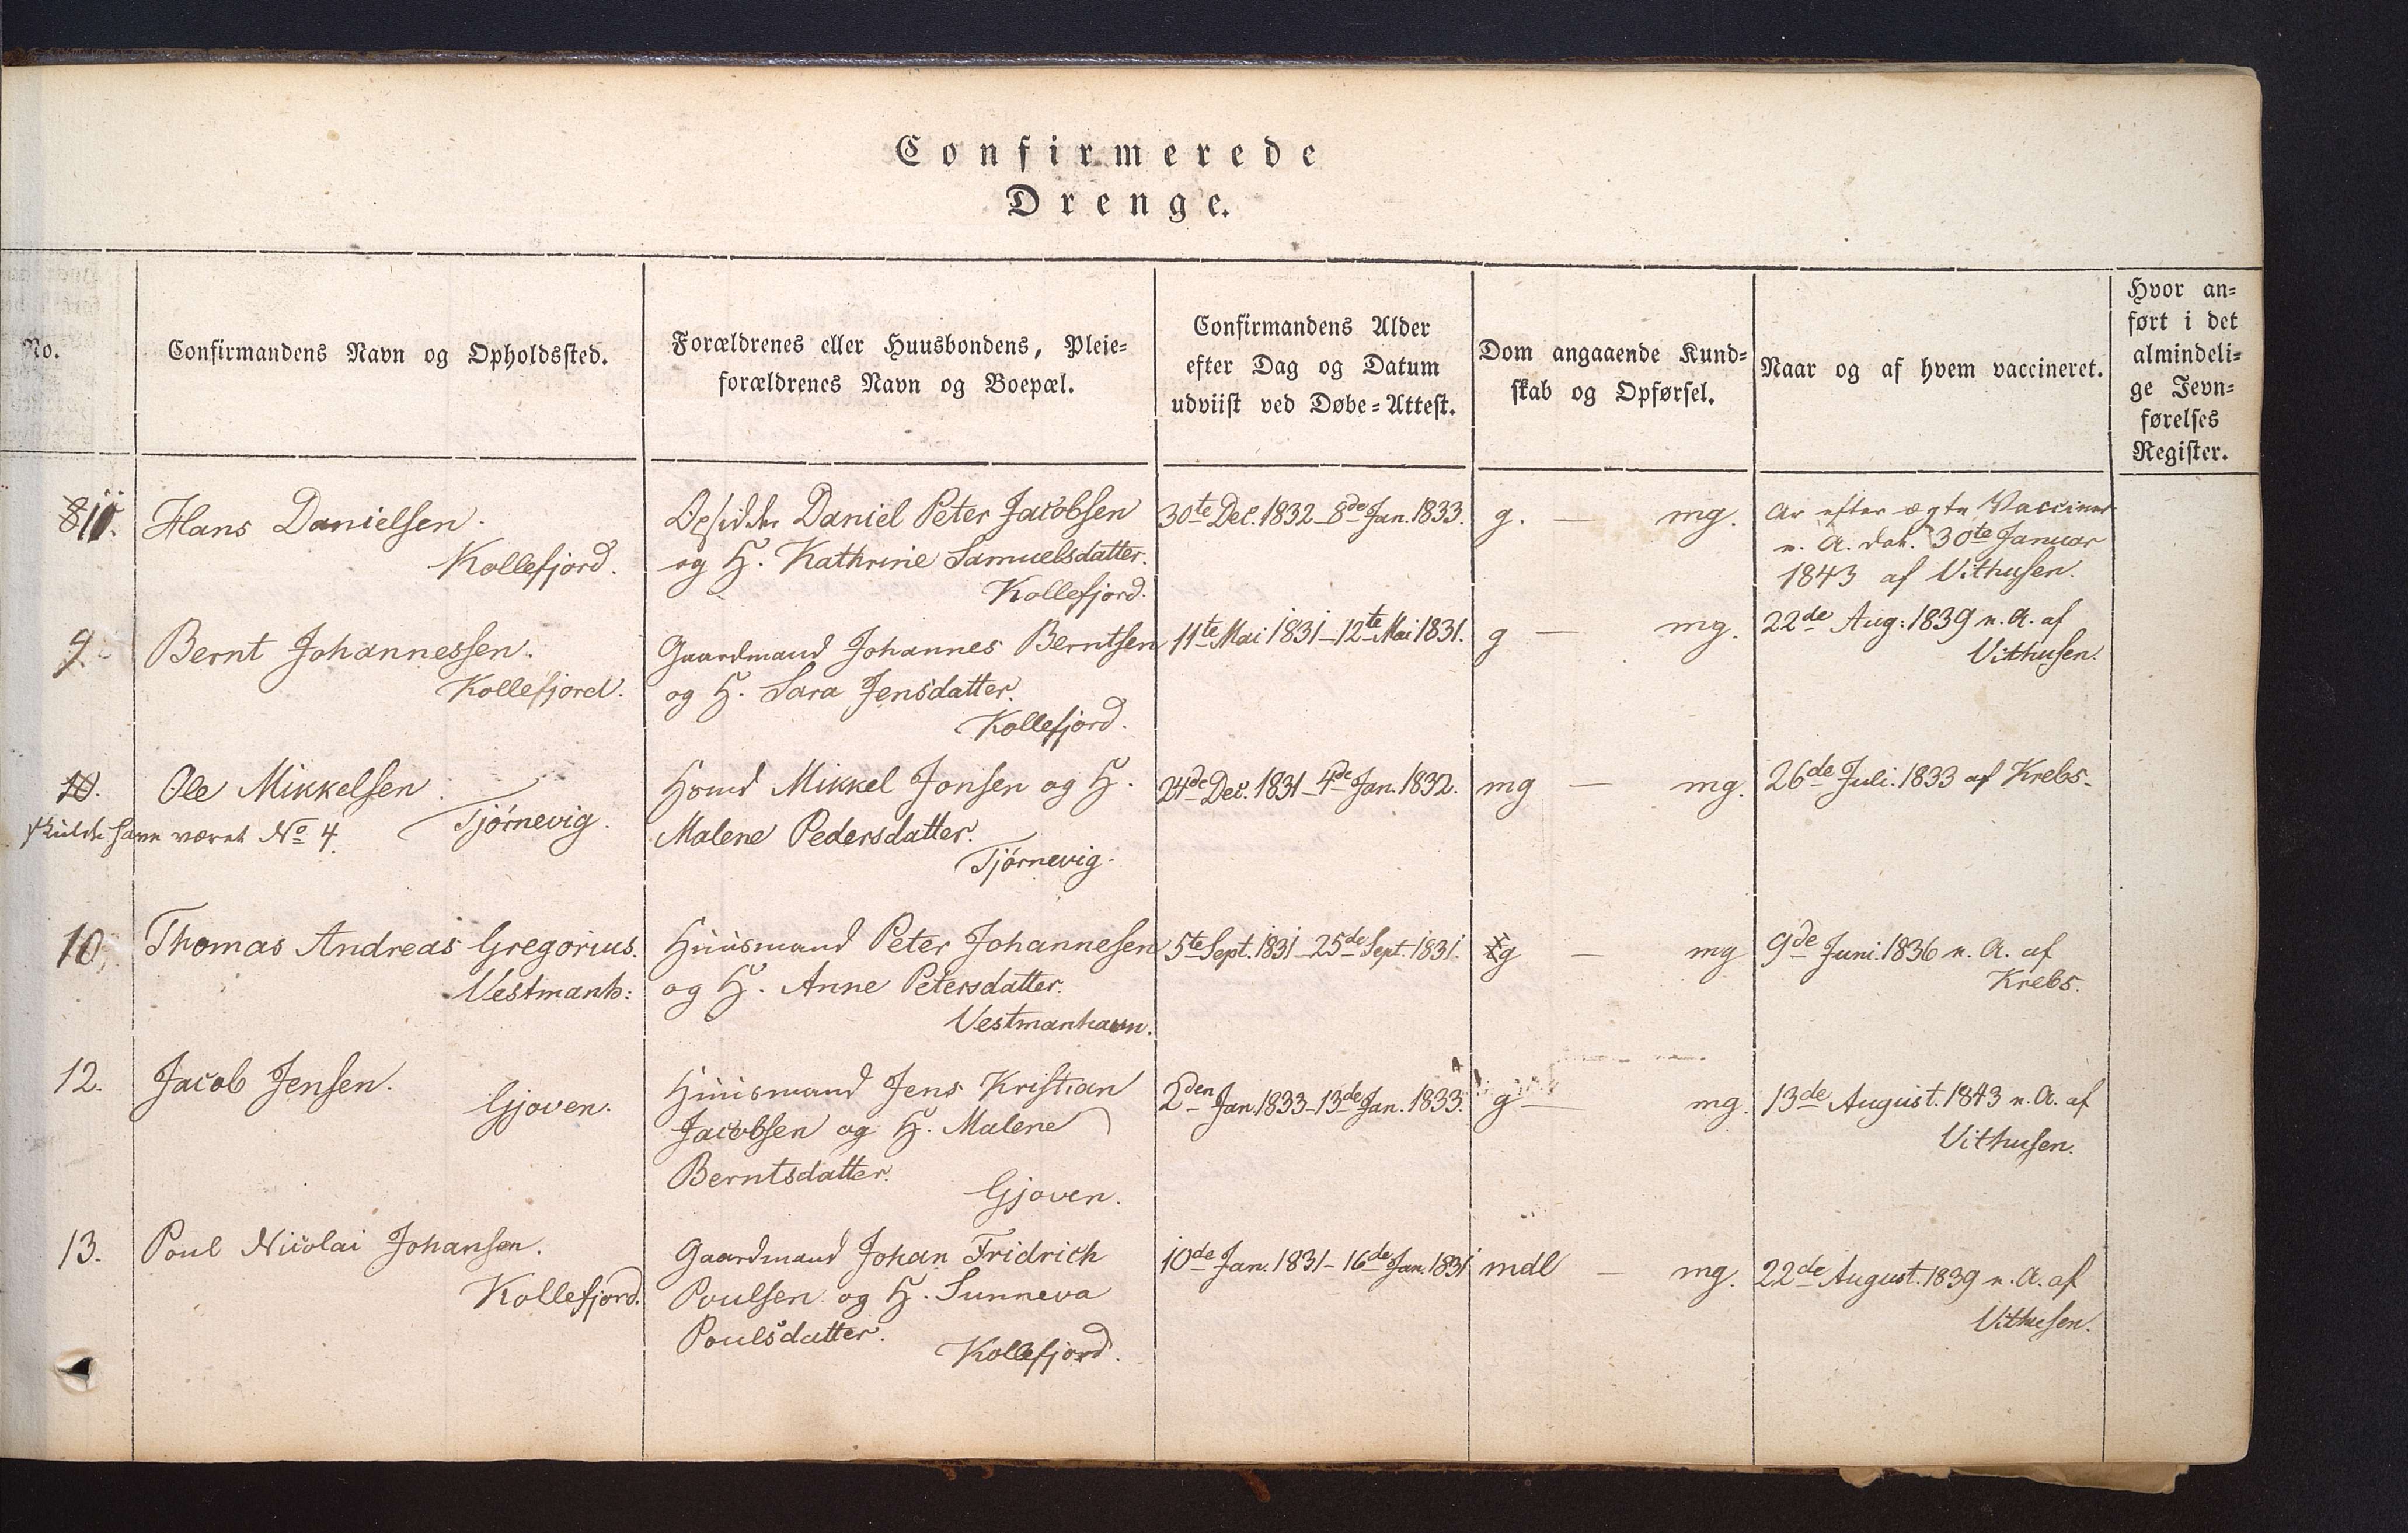 Confirmerede
Drenge.
No.
Confirmandens Navn og Opholdssted.
Forældrenes eller Huusbondens, Pleie=
forældrenes Navn og Boepæl.
Confirmandens Alder
efter Dag og Datum
udviist ved Døbe=Attest.
Dom angaaende Kund=
skab og Opførsel.
Naar og af hvem vaccineret.
Hvor an=
ført i det
almindeli=
ge Jevn=
førelses
Register.
811.
Hans Danielsen.
Kollefjord.
Opsidder Daniel Peter Jacobsen
og H. Kathrine Samuelsdatter.
Kollefjord.
30te Dec. 1832 – 8de Jan. 1833.
g. — mg.
Ar efter ægte Vacciner
n. A. dat. 30te Januar
1843 af Vithusen.
9.
Bernt Johannessen.
Kollefjord.
Gaardmand Johannes Berntsen
og H. Sara Jensdatter.
Kollefjord.
11te Mai 1831 – 12te Mai 1831.
g — mg.
22de Aug: 1839 n. A. af
Vithusen.
10.
Ole Mikkelsen.
Tjørnevig.
skulde have været No 4.
Hsmd Mikkel Jonsen og H.
Malene Pedersdatter.
Tjørnevig.
24de Dec. 1831 – 4de Jan. 1832.
mg — mg.
26de Juli. 1833 af Krebs.
10.
Thomas Andreas Gregorius.
Vestmanh:
Huusmand Peter Johannesen
og H. Anne Petersdatter.
Vestmanhavn.
5te Sept. 1831 – 25de Sept. 1831.
g — mg
9de Juni. 1836 n. A. af
Krebs.
12.
Jacob Jensen.
Gjoven.
Huusmand Jens Kristian
Jacobsen og H. Malene
Berntsdatter.
Gjoven.
2den Jan. 1833 – 13de Jan. 1833.
g — mg.
13de August. 1843 n. A. af
Vithusen.
13.
Poul Nicolai Johansen.
Kollefjord.
Gaardmand Johan Fridrich
Poulsen og H. Sunneva
Poulsdatter.
Kollefjord.
10de Jan. 1831 – 16de Jan. 1831
mdl — mg.
22de August. 1839 n. A. af
Vithusen.